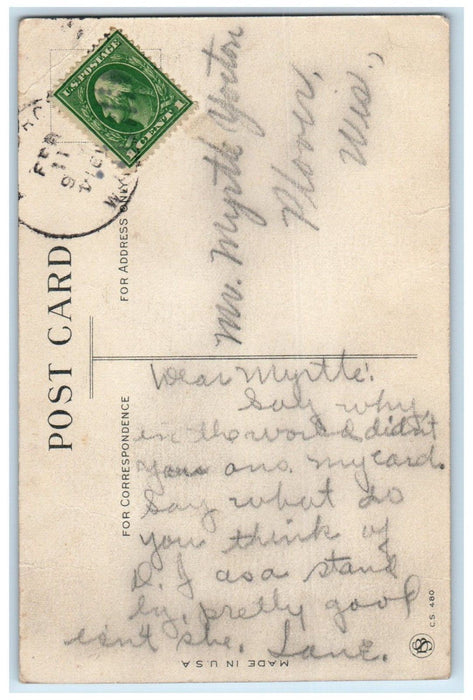 POST CARD
FOR ADDRESS ONLY
FOR CORRESPONDENCE
U.S. POSTAGE
1 CENT 1
FEB
11
1914
Mr. Myrtle Yorton
Plover,
Wis.,
Dear Myrtle:
Say why,
in the world didn't
you ans. my card.
Say what do
you think of
D. J as a stand
by, pretty good
isn't she. Jane.
MADE IN U.S.A
C.S. 480